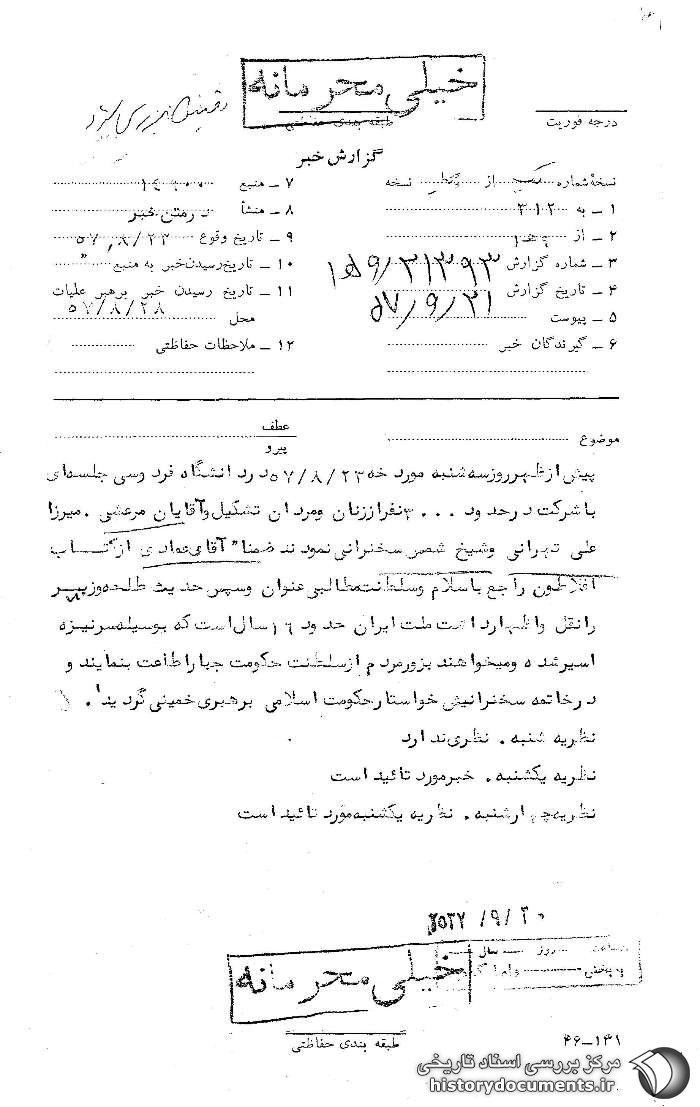 خیلی محرمانه
طبقه بندی حفاظتی
درجه فوریت
گزارش خبر
نسخهٔ شماره یک از نسخه
۷ - منبع
۱ - به ۳۱۲
۸ - منشأ در متن خبر
۲ - از
۹ - تاریخ وقوع ۵۷/۸/۲۳
۳ - شماره گزارش
۱۰ - تاریخ رسیدن خبر به منبع "
۴ - تاریخ گزارش ۵۷/۹/۲۱
۱۱ - تاریخ رسیدن خبر برهبر عملیات
محل ۵۷/۸/۲۸
۵ - پیوست
۶ - گیرندگان خبر
۱۲ - ملاحظات حفاظتی
موضوع
عطف
پیرو
پیش از ظهر روز سه شنبه مورخه ۵۷/۸/۲۳ در دانشگاه فردوسی جلسه‌ای
با شرکت در حدود ۳۰۰۰ نفر از زنان و مردان تشکیل و آقایان مرعشی . میرزا
علی تهرانی و شیخ سخنرانی نمودند ضمنا" آقای عمادی از کتاب
افلاطون راجع باسلام و سلطنت مطالبی عنوان و سپس حدیث طلحه و زبیر
را نقل و اظهار داشت ملت ایران حدود ۱۶ سال است که بوسیله سرنیزه
اسیر شده و میخواهند بزور مردم از سلطنت حکومت جبار اطاعت بنمایند و
در خاتمه سخنرانیش خواستار حکومت اسلامی برهبری خمینی گردید .
نظریه شنبه . نظری ندارد
نظریه یکشنبه . خبر مورد تائید است
نظریه چهارشنبه . نظریه یکشنبه مورد تائید است
۲۵۳۷/۹/۲۰
ساعت روز سال
به بخش
خیلی محرمانه
طبقه بندی حفاظتی
۴۶-۱۳۱
مرکز بررسی اسناد تاریخی
historydocuments.ir